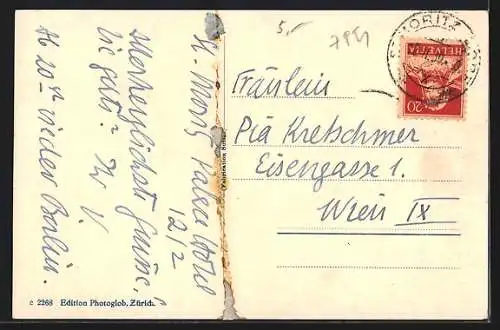 5.-
ST. MORITZ
HELVETIA
20
St. Moritz Palace Hotel
12/2
Allerherzlichste Grüsse.
Wie geht's? Ihr V.
Ab 20ten wieder Berlin.
Fräulein
Pia Kretschmer
Eisengasse 1.
Wien IX
c 2268 Edition Photoglob, Zürich.